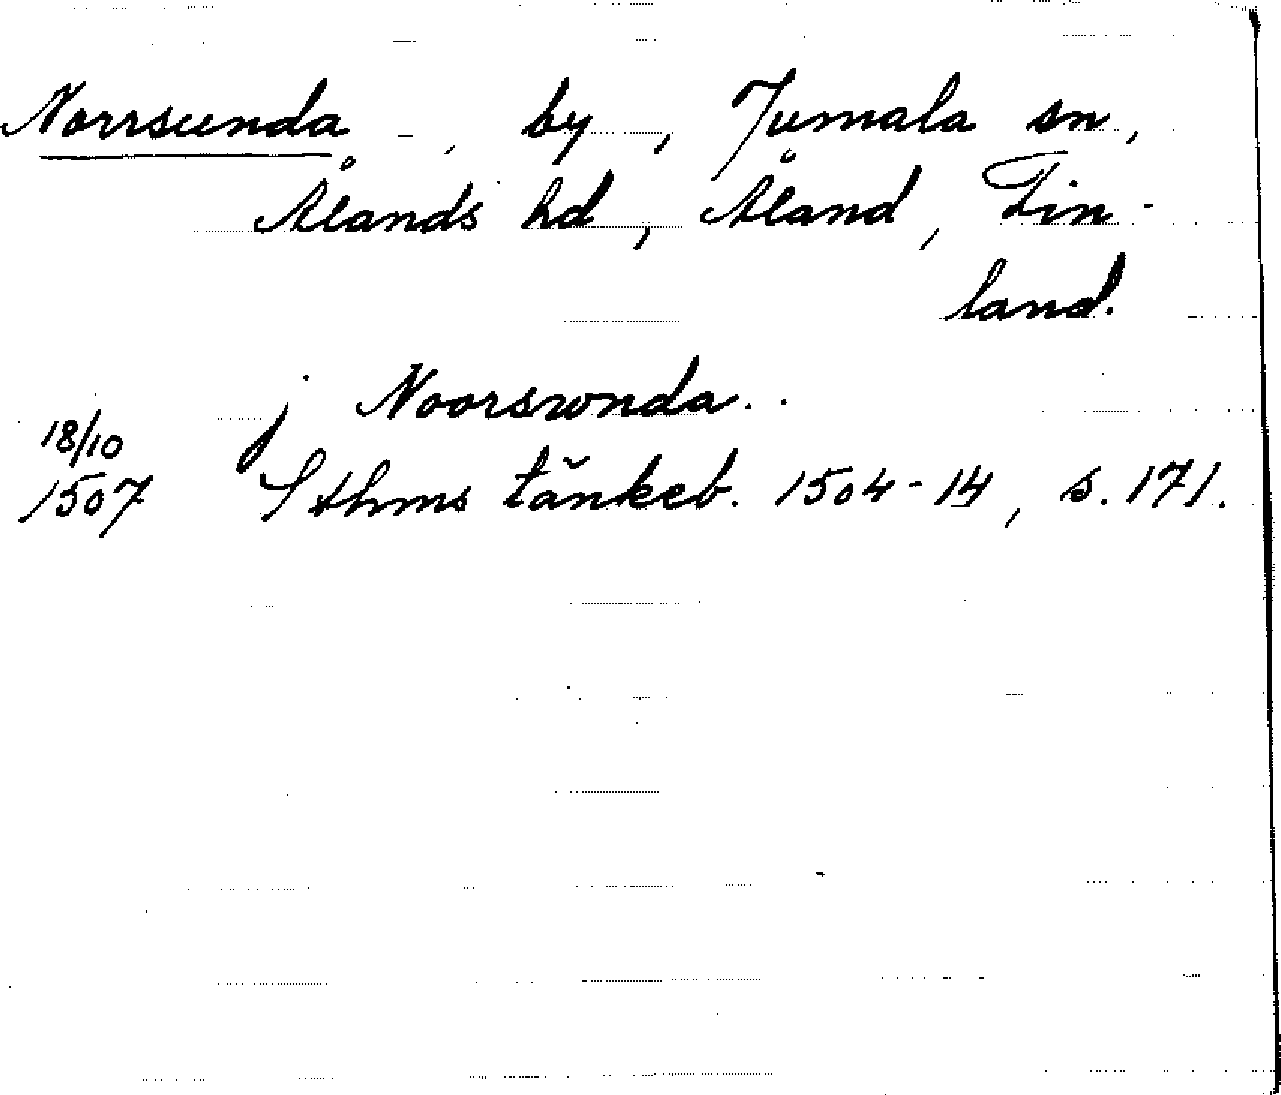 Norrsunda - , by , Jumala sn,
Ålands hd, Åland, Fin-
land.
j Noorswnda . .
18/10
1507 Sthms tänkeb. 1504-14, s. 171.